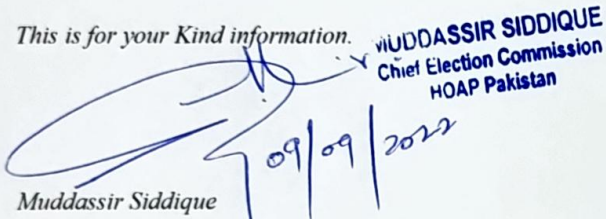 This is for your Kind information.
MUDDASSIR SIDDIQUE
Chief Election Commission
HOAP Pakistan
09/09/2022
Muddassir Siddique